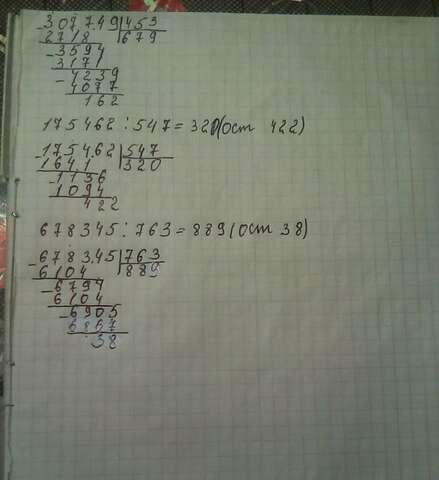 -307749|453
2718 |679
-3594
3171
-4239
4077
162
175462 : 547 = 320 (ост 422)
-175462|547
1641 |320
-1136
1094
422
678345 : 763 = 889 (ост 38)
-678345|763
6104 |889
-6794
6104
-6905
6867
38